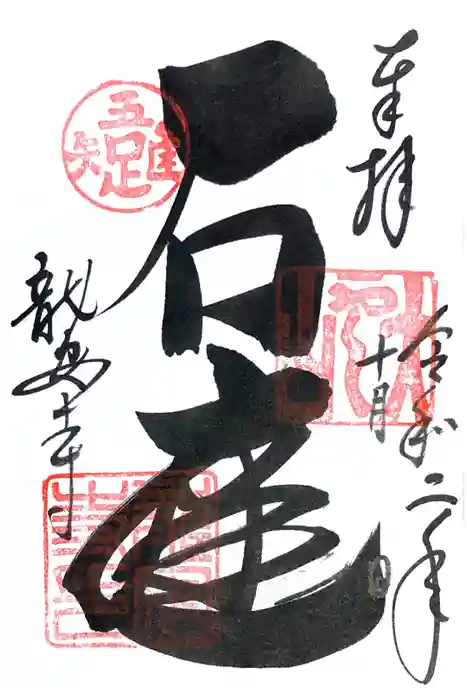 奉拝
令和二年
十月 日
石庭
龍安寺
吾唯足知